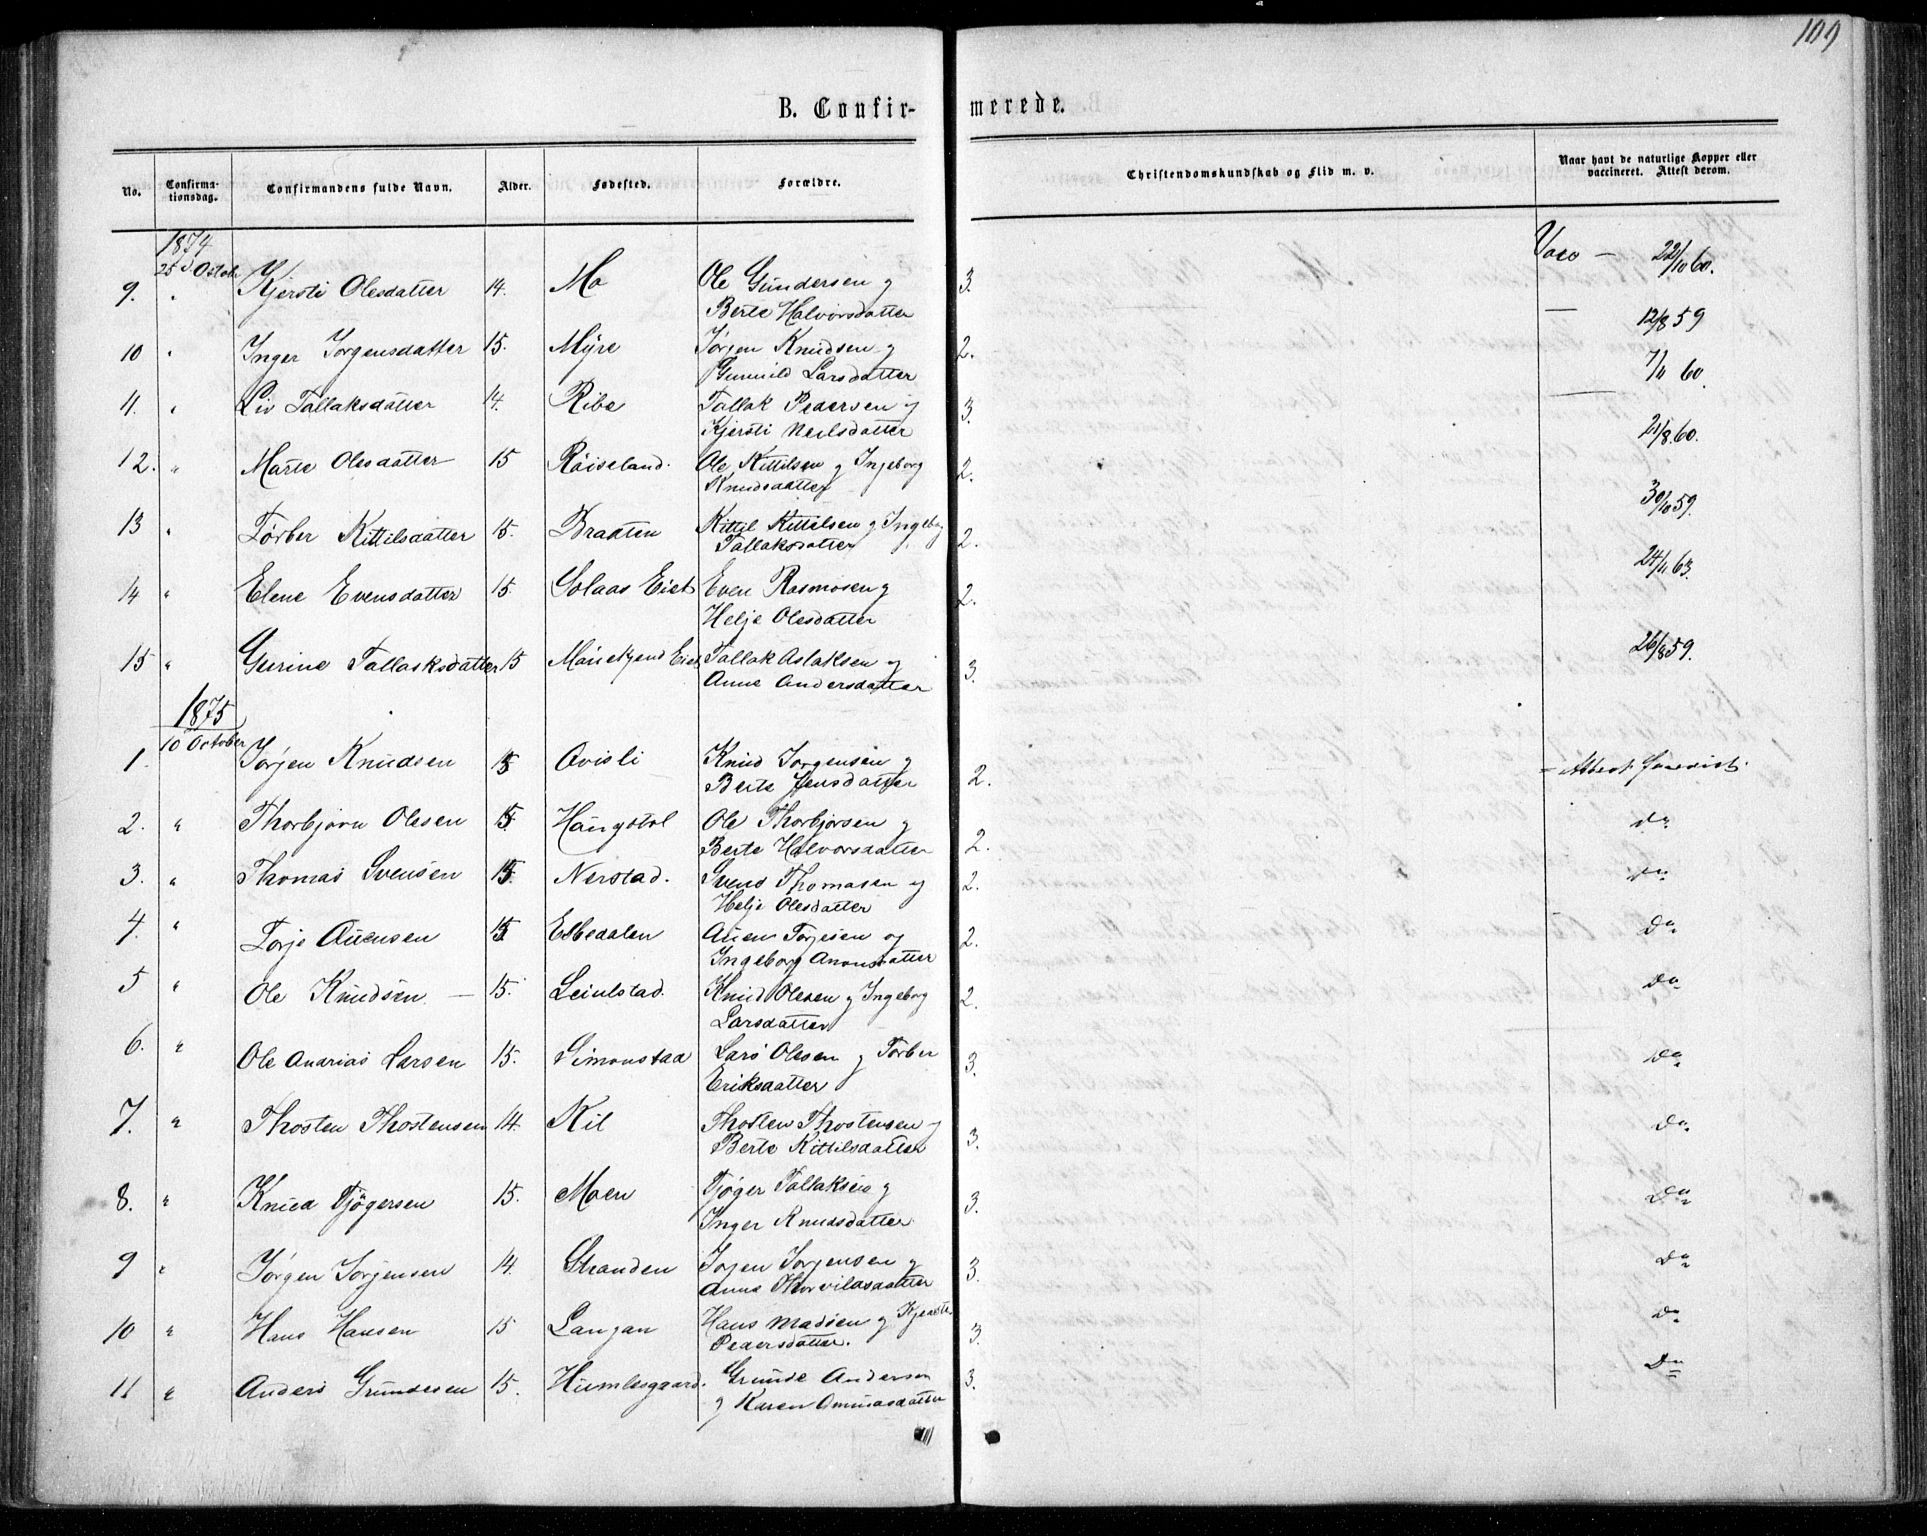 109
B. Confir-
merede.
No.
Confirma-
tionsdag.
Confirmandens fulde Navn.
Alder.
Fødested.
Forældre.
Christendomskundskab og Flid m. v.
Naar havt de naturlige Kopper eller
vaccineret. Attest derom.
1874
25 Octob
9. " Kjersti Olesdatter 14. Mo Ole Gundersen og 3. Vacc — 22/10 60.
Berte Halvorsdatter
10 " Inger Jorgensdatter 15. Myre Jørgen Knudsen og 2. — 12/8 59
Gunnild Larsdatter
11. " Liv Tallaksdatter 14. Ribe Tallak Pedersen og 3. — 7/11 60.
Kjersti Neilsdatter
12. " Marte Olesdatter 15 Röiseland. Ole Kittilsen og Ingeborg 2. 21/8 60.
Knudsdatter
13 " Torber Kittilsdatter 15. Braaten Kittil Kittilsen og Ingeborg 2. 30/10 59.
Tallaksdatter
14 " Elene Evensdatter 15 Solaas Eiet Even Rasmosen og 2. 24/11 63.
Helje Olesdatter
15 " Gurine Tallaksdatter 15 Eiet Tallak Aslaksen og 3. 26/8 59.
Anne Andersdatter
1875
10 October
1. Jørgen Knudsen 15 Ovisli Knud Jorgensen og 2. Attest
Berte Jensdatter
2. " Thorbjørn Olesen 15 Haugstol Ole Thorbjorsen og 2. Do
Berte Halvorsdatter
3. " Thomas Svensen 15. Nerstad. Svend Thomasen og 2. Do
Helje Olesdatter
4. " Torje Auensen 15 Esbedalen Auen Torjesen og 2. Do
Ingeborg Anonsdatter
5 " Ole Knudsen — 15. Leiulstad. Knud Olesen og Ingeborg 2. Do
Larsdatter
6. " Ole Andrias Larsen 15. Simonstad Lars Olesen og Torber 3. Do
Eriksdatter
7. " Thosten Thostensen 14. Kil Thosten Thostensen og 3. Do
Berte Kittilsdatter
8. " Knud Tjögersen 15. Moen Tjöger Tallaksen og 3. Do
Inger Knudsdatter
9 " Jörgen Jorgensen 14. Stranden Jorgen Jorgensen og 3. Do
Anne Thorvildsdatter
10 " Hans Hansen 15 Langan Hans Madsen og Kjerste 3. Do
Pedersdatter.
11 " Anders Grundesen 15. Humlesgaard. Grunde Andersen 3. Do
og Karen Omunsdatter